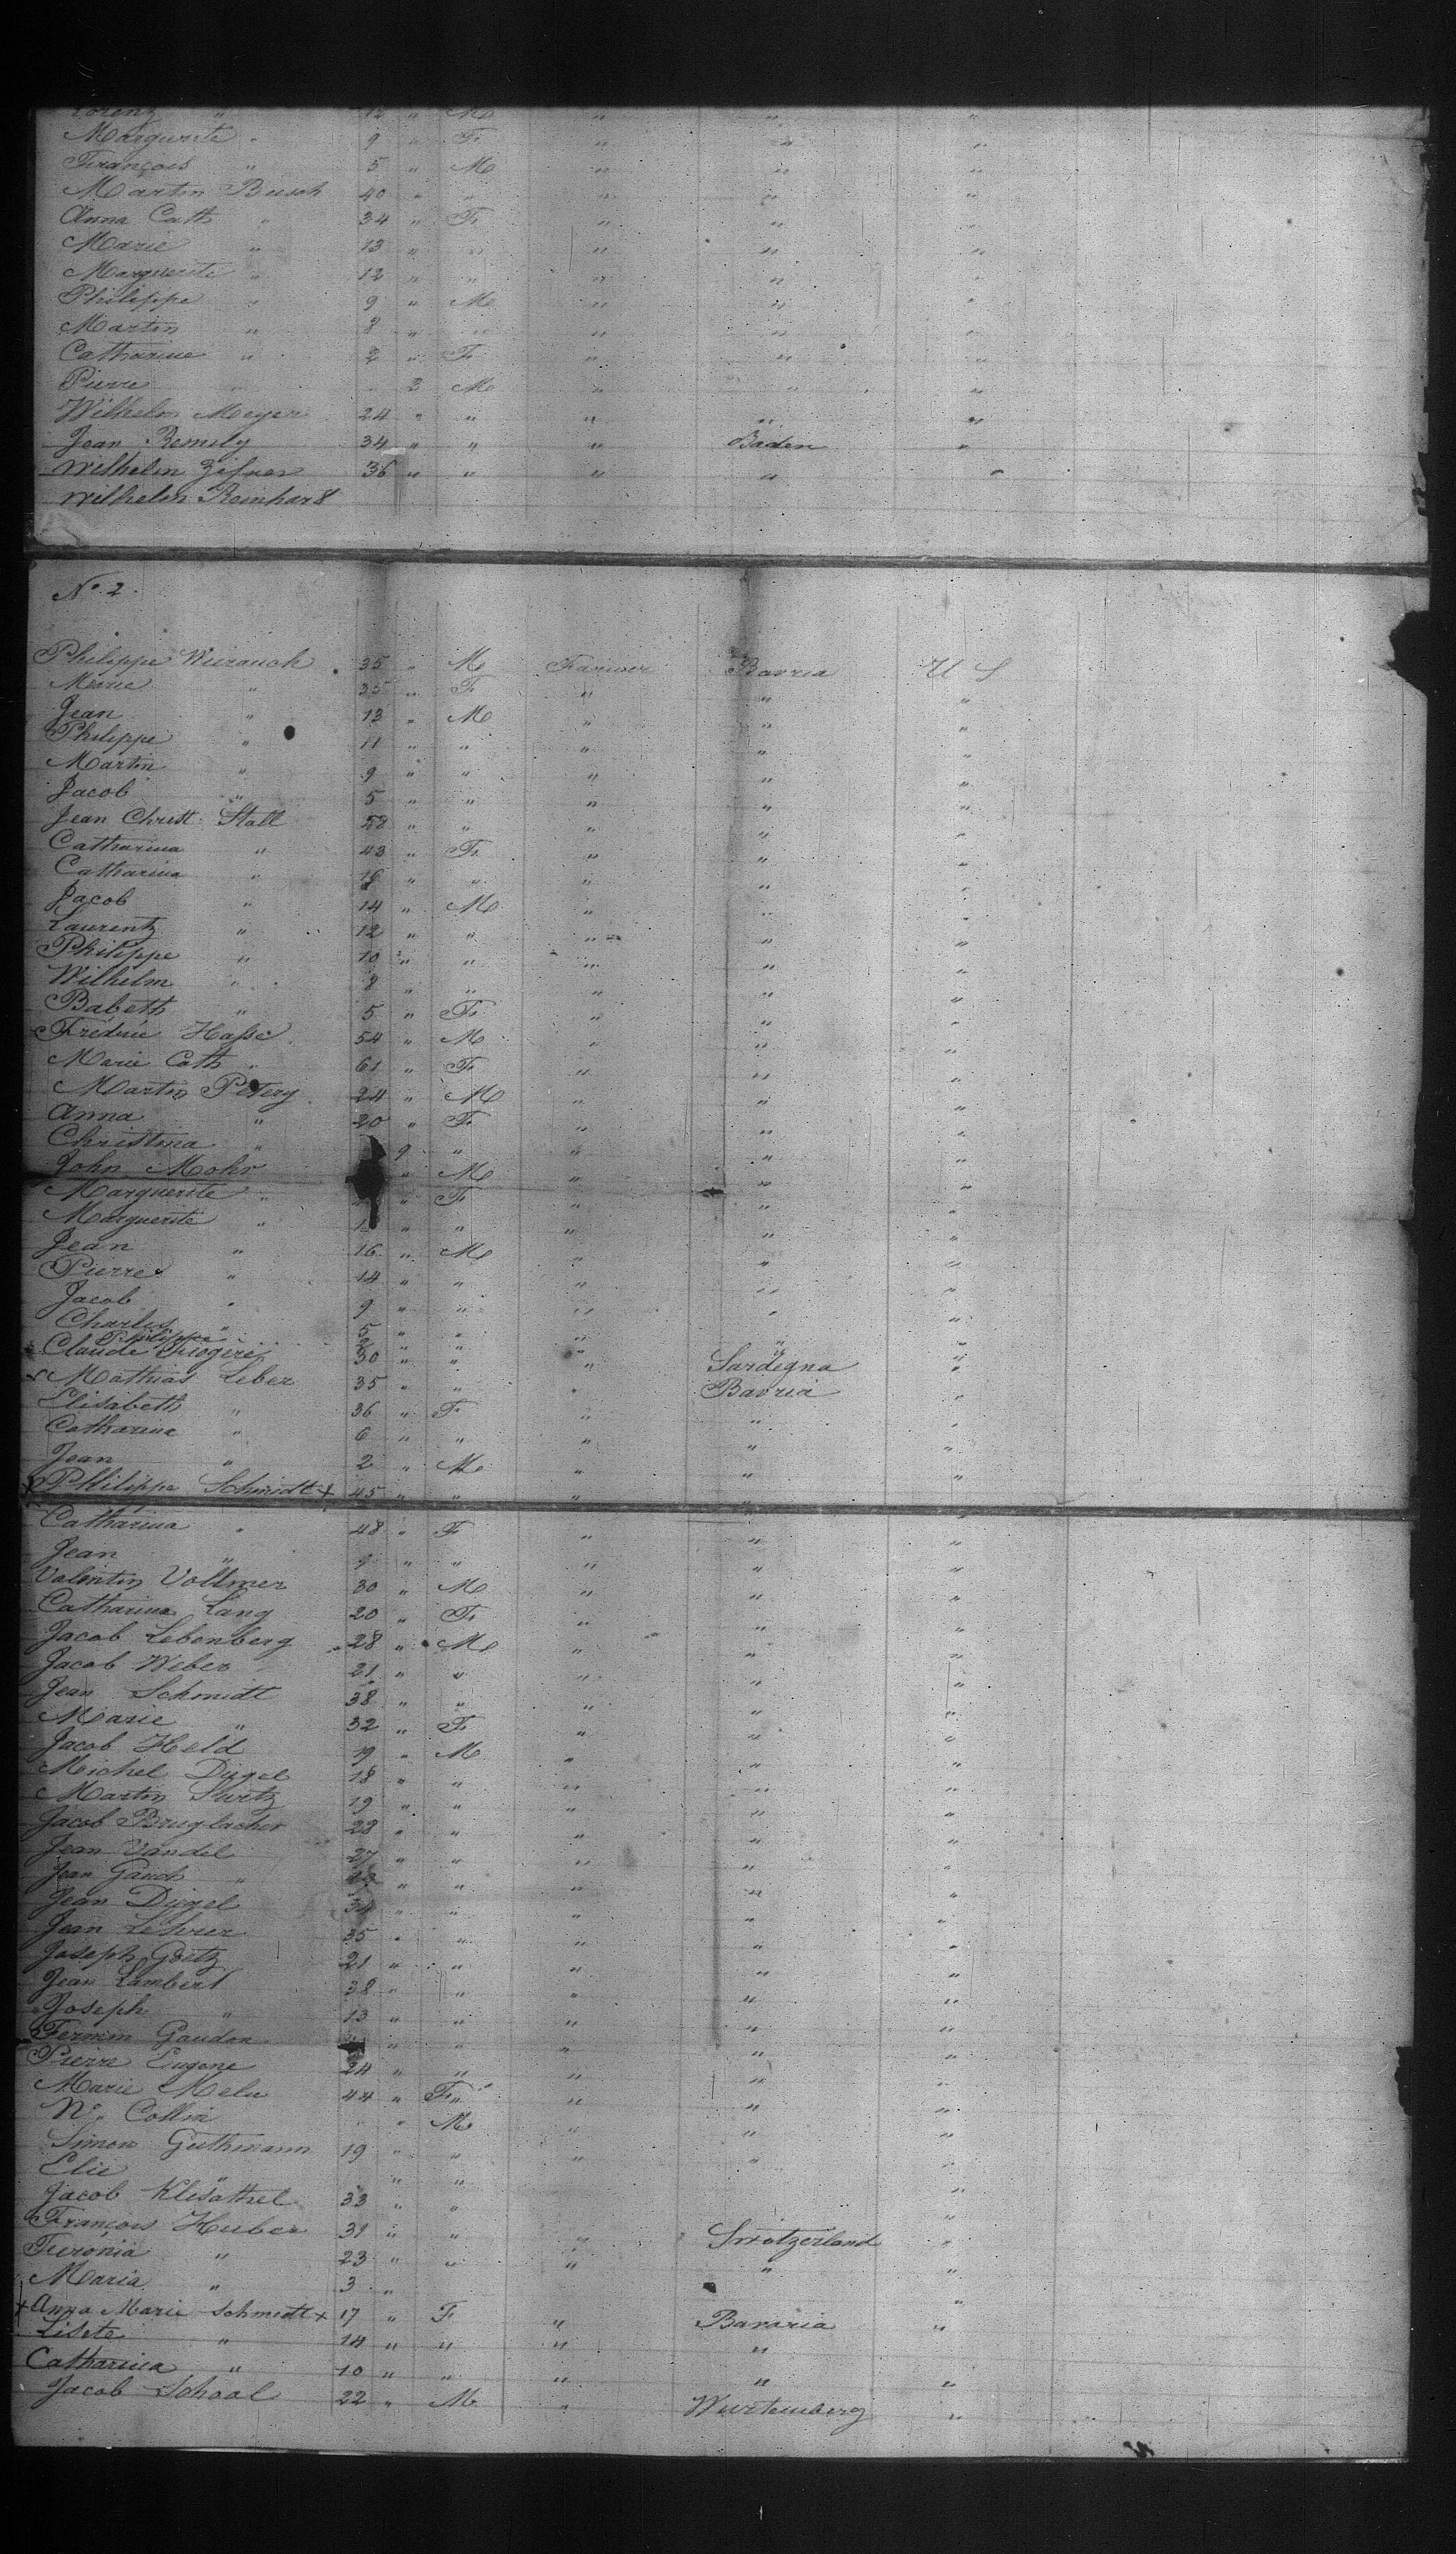 Lorenz " 12 " M " " "
Marguerite " 9 " F " " "
François " 5 " M " " "
Martin Busch 40 " " " " "
Anna Cath " 34 " F " " "
Marie " 13 " " " " "
Marguerite " 12 " " " " "
Philippe " 9 " M " " "
Martin " 8 " " " " "
Catharine " 2 " F " " "
Pierre " " 3 M " " "
Wilhelm Meyer 24 " " " " "
Jean Remily 34 " " " Baden "
Wilhelm 36 " " " " "
Wilhelm Reinhard
No. 2.
Philippe Weirauch 35 " M Farmer Bavria U S
Marie " 35 " F " " "
Jean " 13 " M " " "
Philippe " 11 " " " " "
Martin " 9 " " " " "
Jacob " 5 " " " " "
Jean Christ. Stall 58 " " " " "
Catharina " 43 " F " " "
Catharina " 16 " " " " "
Jacob " 14 " M " " "
Laurentz " 12 " " " " "
Philippe " 10 " " " " "
Wilhelm " 8 " " " " "
Babeth " 5 " F " " "
Frédéric Hasse 54 " M " " "
Marie Cath " 61 " F " " "
Martin Petery 24 " M " " "
Anna " 20 " F " " "
Christina " 9 " " " "
John Mohr " M " " "
Marguerite " " F " " "
Marguerite " " " " " "
Jean " 16 " M " " "
Pierre " 14 " " " " "
Jacob " 9 " " " " "
Charles " 5 " " " " "
Philippe " 2 " " " " "
Claude 30 " " " Sardegna "
Mathias Leber 35 " " " Bavria "
Elisabeth " 36 " F " " "
Catharine " 6 " " " " "
Jean " 2 " M " " "
x Philippe Schmidt x 45 " " " " "
Catharina " 48 " F " " "
Jean " 9 " " " " "
Valentin Vollmer 30 " M " " "
Catharina Lang 20 " F " " "
Jacob Lebenberg 28 " M " " "
Jacob Weber 21 " " " " "
Jean Schmidt 38 " " " " "
Marie " 32 " F " " "
Jacob Held 19 " M " " "
Michel Dügel 18 " " " " "
Martin Kurtz 19 " " " " "
Jacob Bruglacher 28 " " " " "
Jean Vandel 27 " " " " "
Jean Gauch " " " " " "
Jean Dügel 34 " " " " "
Jean Lehrer 35 " " " " "
Joseph Goetz 21 " " " " "
Jean Lambert 38 " " " " "
Joseph " 13 " " " " "
Fermin Gaudon " " " " "
Pierre Eugene 24 " " " " "
Marie Mela 44 " F " " "
N. Collin " " M " " "
Simon Guthmann 19 " " " " "
Elie " " "
Jacob 33 " " "
François Huber 31 " " " Switzerland "
Feronia " 23 " " " " "
Maria " 3 "
x Anna Marie Schmidt x 17 " F " Bavaria "
Lisete " 14 " " " "
Catharina " 10 " " " " "
Jacob Schaal 22 " M " Wurtemberg "